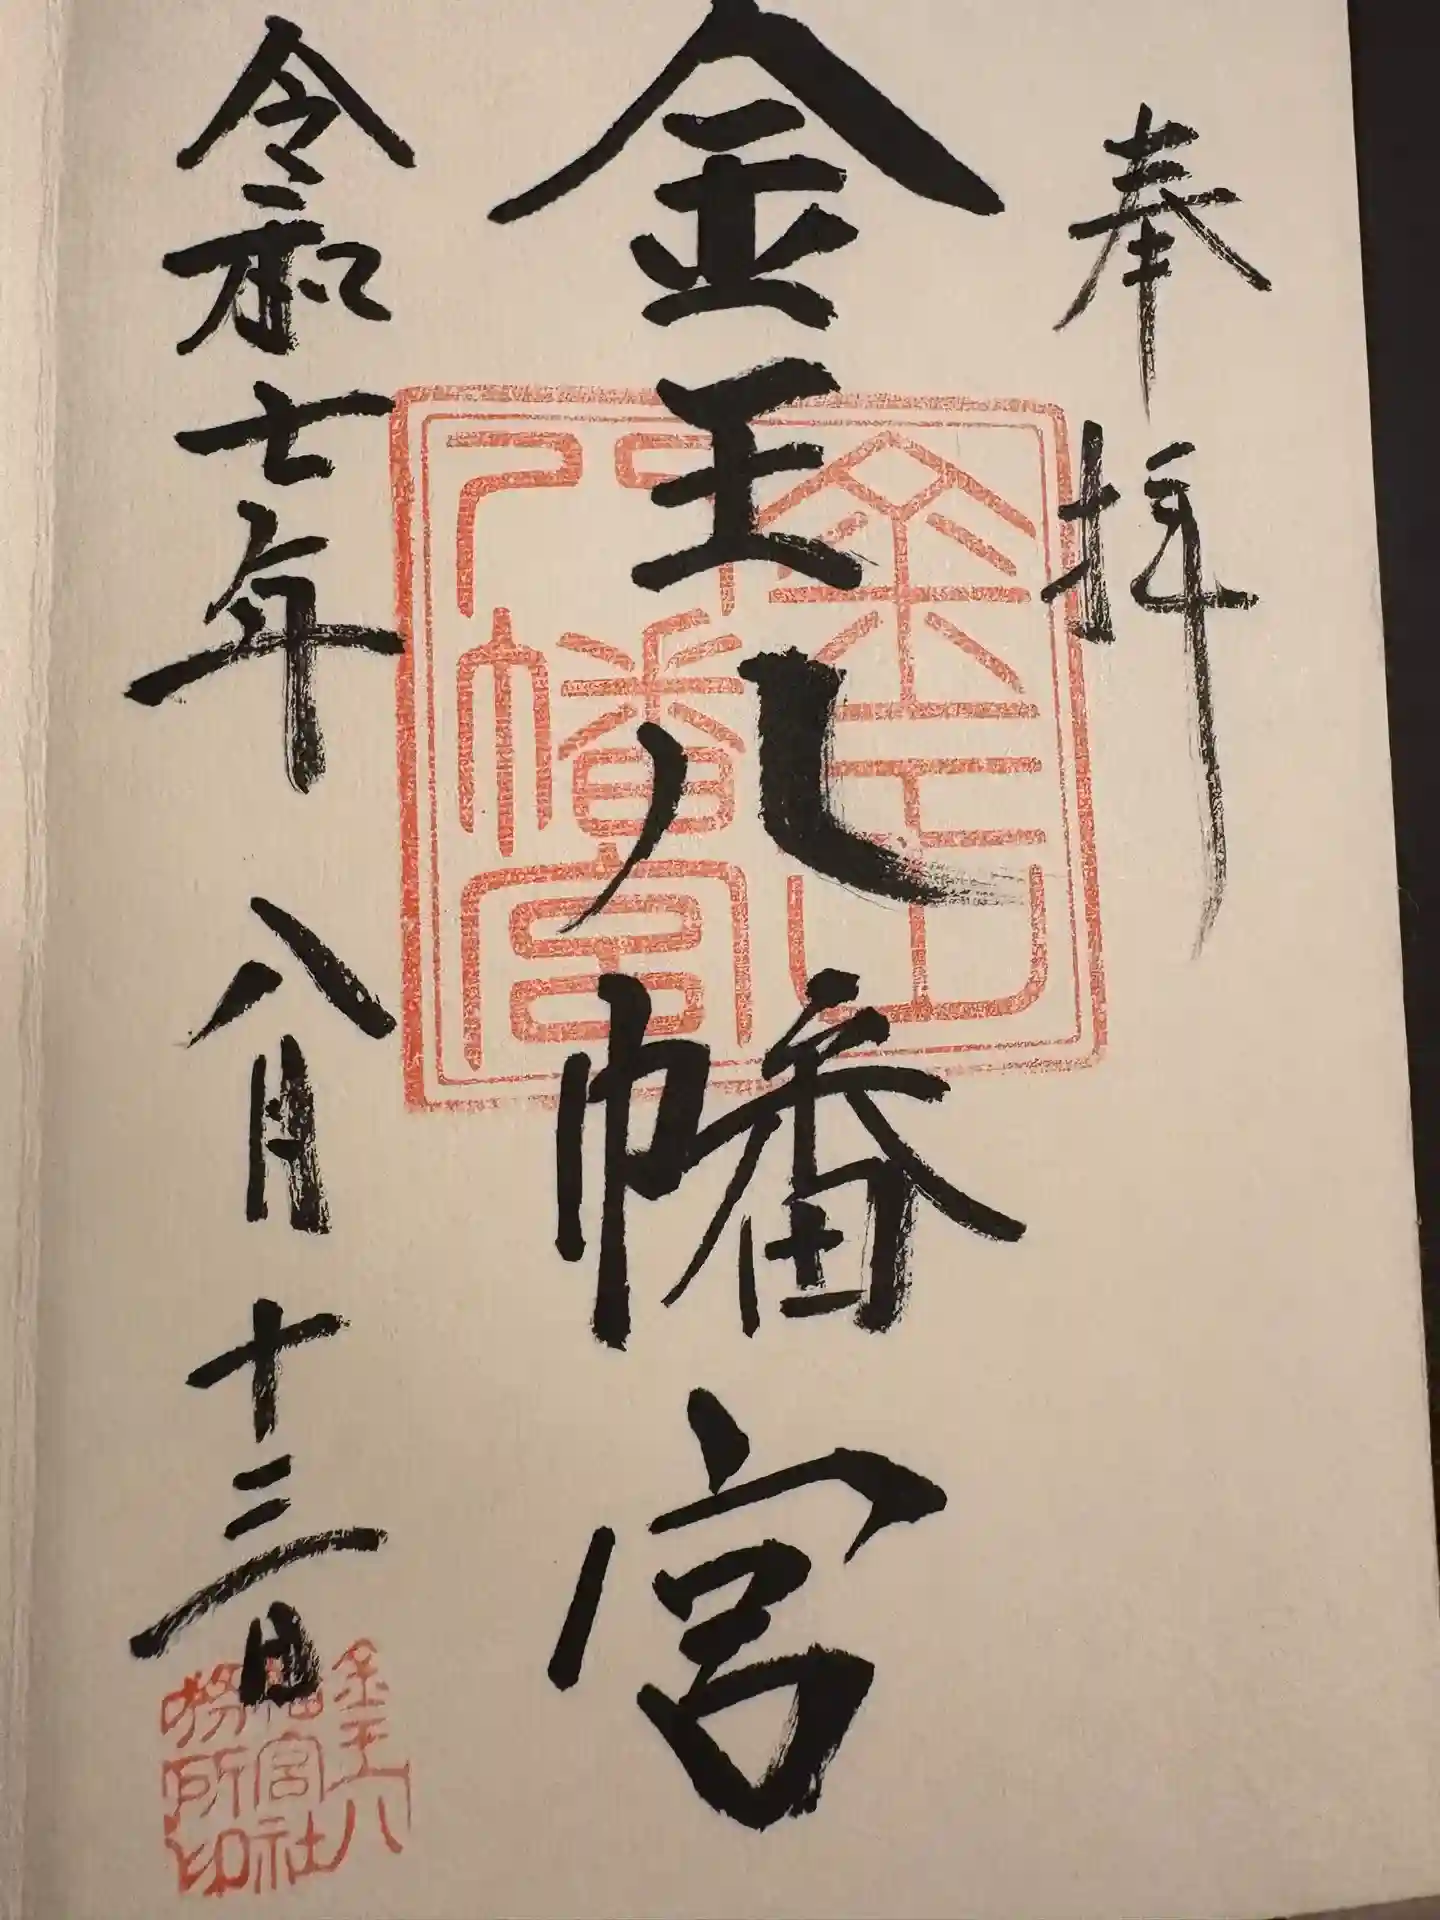 奉拝
金王八幡宮
令和七年 八月十三日
金王山
八幡宮
金王八
幡宮社
務所印